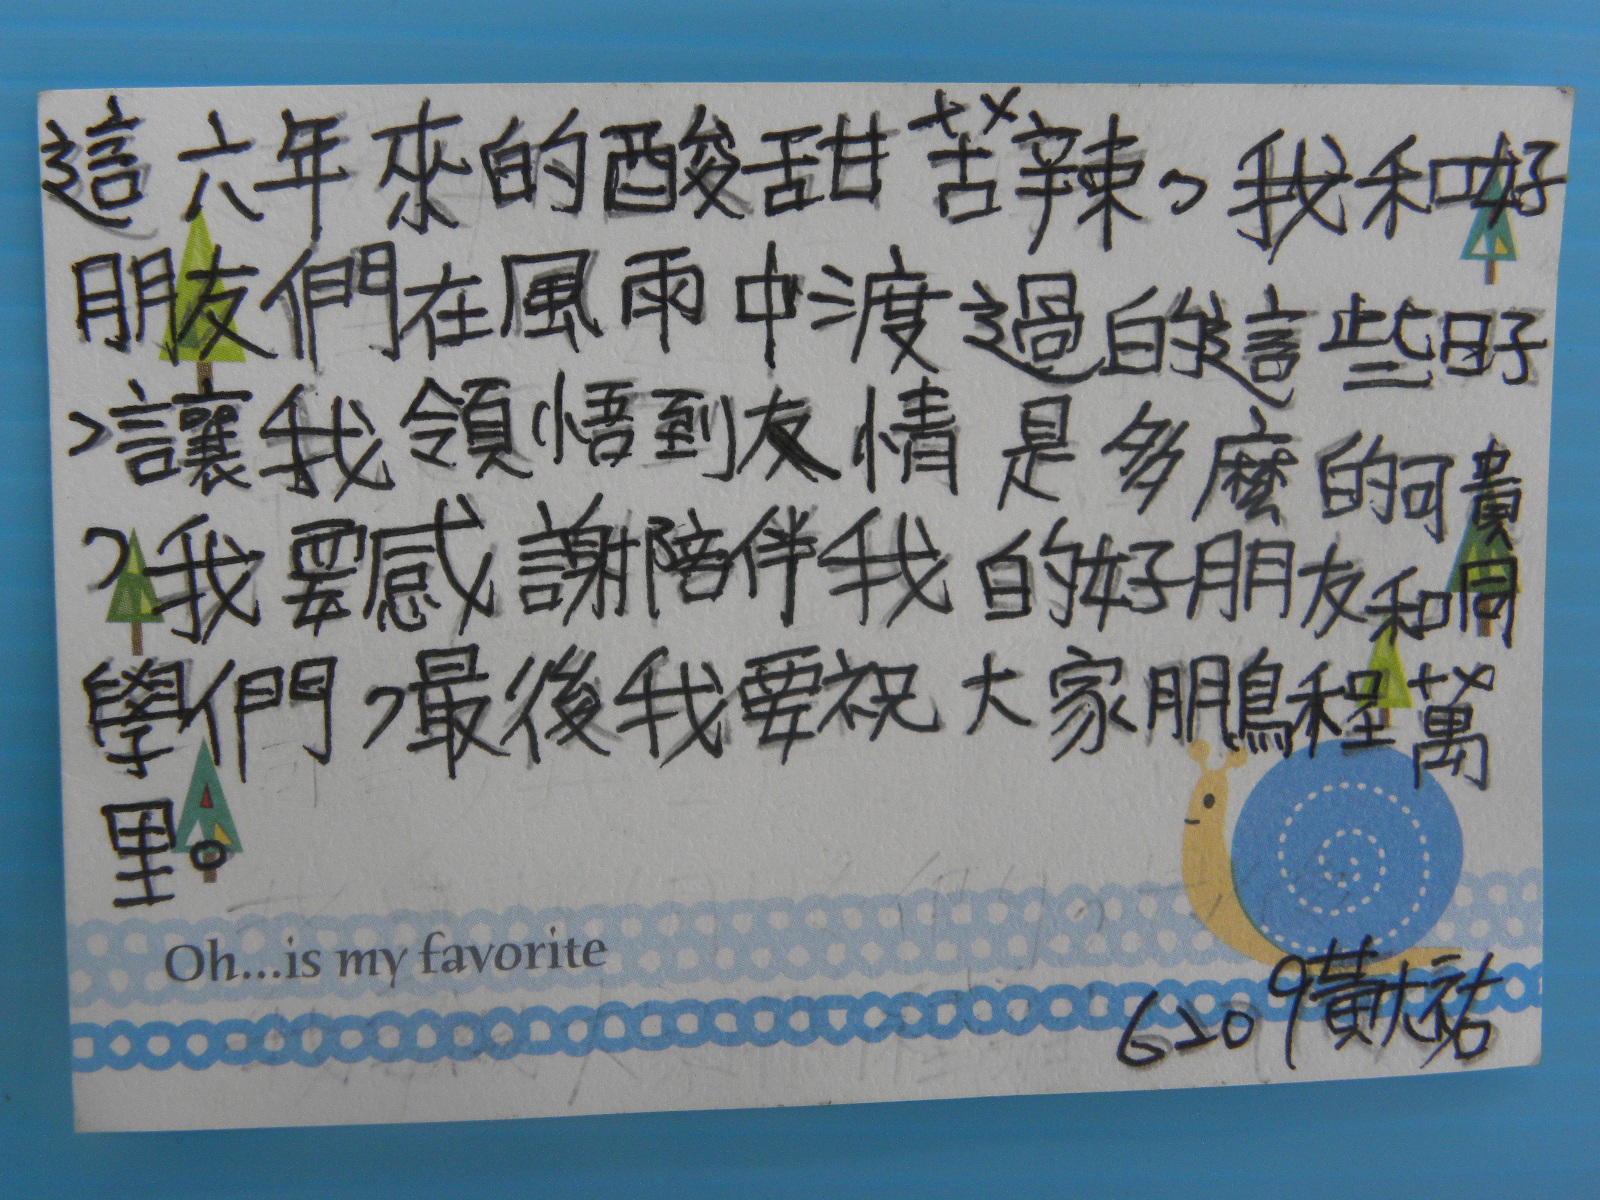 這六年來的酸甜苦辣，我和好
朋友們在風雨中渡過的這些日子
，讓我領悟到友情是多麼的可貴
，我要感謝陪伴我的好朋友和同
學們，最後我要祝大家鵬程萬
里。
Oh...is my favorite
6209黃大祐